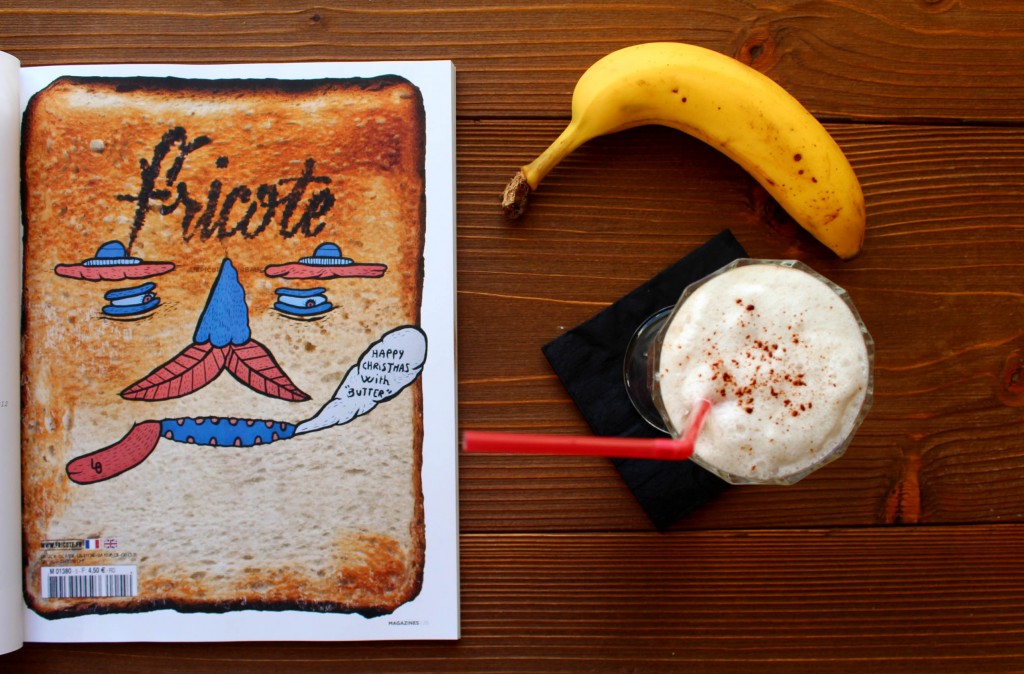 fricote
HAPPY
CHRISTMAS
with
"BUTTER"
WWW.FRICOTE.FR
M 01380 - 5 - F: 4,50 € - RD
MAGAZINES